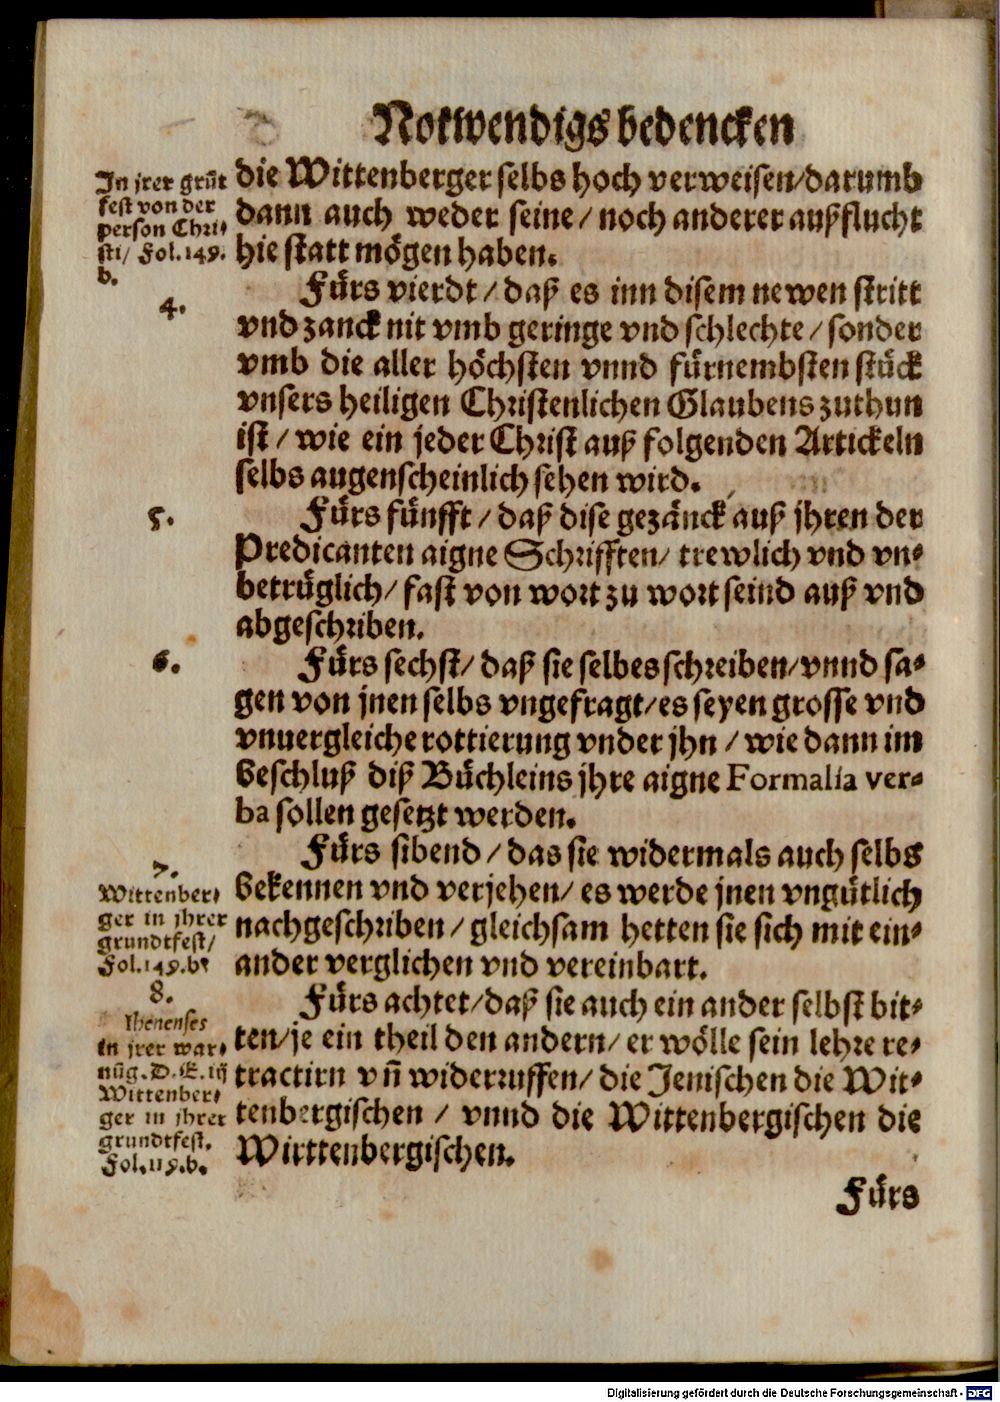 Notwendigs bedencken
die Wittenberger selbs hoch verweisen/darumb
dann auch weder seine/ noch anderer außflucht
hie statt mögen haben.
In jrer grūt
fest von der
person Chri⸗
sti/ Fol.149.
b.
4.
Fürs vierdt/ daß es inn disem newen stritt
vnd zanck nit vmb geringe vnd schlechte/ sonder
vmb die aller höchsten vnnd fürnembsten stück
vnsers heiligen Christenlichen Glaubens zuthun
ist/ wie ein jeder Christ auß folgenden Artickeln
selbs augenscheinlich sehen wird.
5.
Fürs fünfft/ daß dise gezänck auß jhren der
Predicanten aigne Schrifften/ trewlich vnd vn⸗
betrüglich/ fast von wort zu wort seind auß vnd
abgeschriben.
6.
Fürs sechst/ daß sie selbes schreiben/vnnd sa⸗
gen von jnen selbs vngefragt/es seyen grosse vnd
vnuergleiche rottierung vnder jhn/ wie dann im
beschluß diß Büchleins jhre aigne Formalia ver⸗
ba sollen gesetzt werden.
7.
Fürs sibend/ das sie widermals auch selbs
bekennen vnd verjehen/ es werde jnen vngütlich
nachgeschriben/ gleichsam hetten sie sich mit ein⸗
ander verglichen vnd vereinbart.
Wittenber⸗
ger in jhrer
grundtfest/
Fol.149.b
8.
Fürs achtet/daß sie auch ein ander selbst bit⸗
ten/je ein theil den andern/ er wölle sein lehre re⸗
tractirn vñ widerruffen/ die Jenischen die Wit⸗
tenbergischen/ vnnd die Wittenbergischen die
Wirttenbergischen.
Ihenenses
in jrer war⸗
nūg. D. E. iij
Wittenber⸗
ger in jhrer
grundtfest.
Fol.119.b.
Fürs
Digitalisierung gefördert durch die Deutsche Forschungsgemeinschaft - DFG